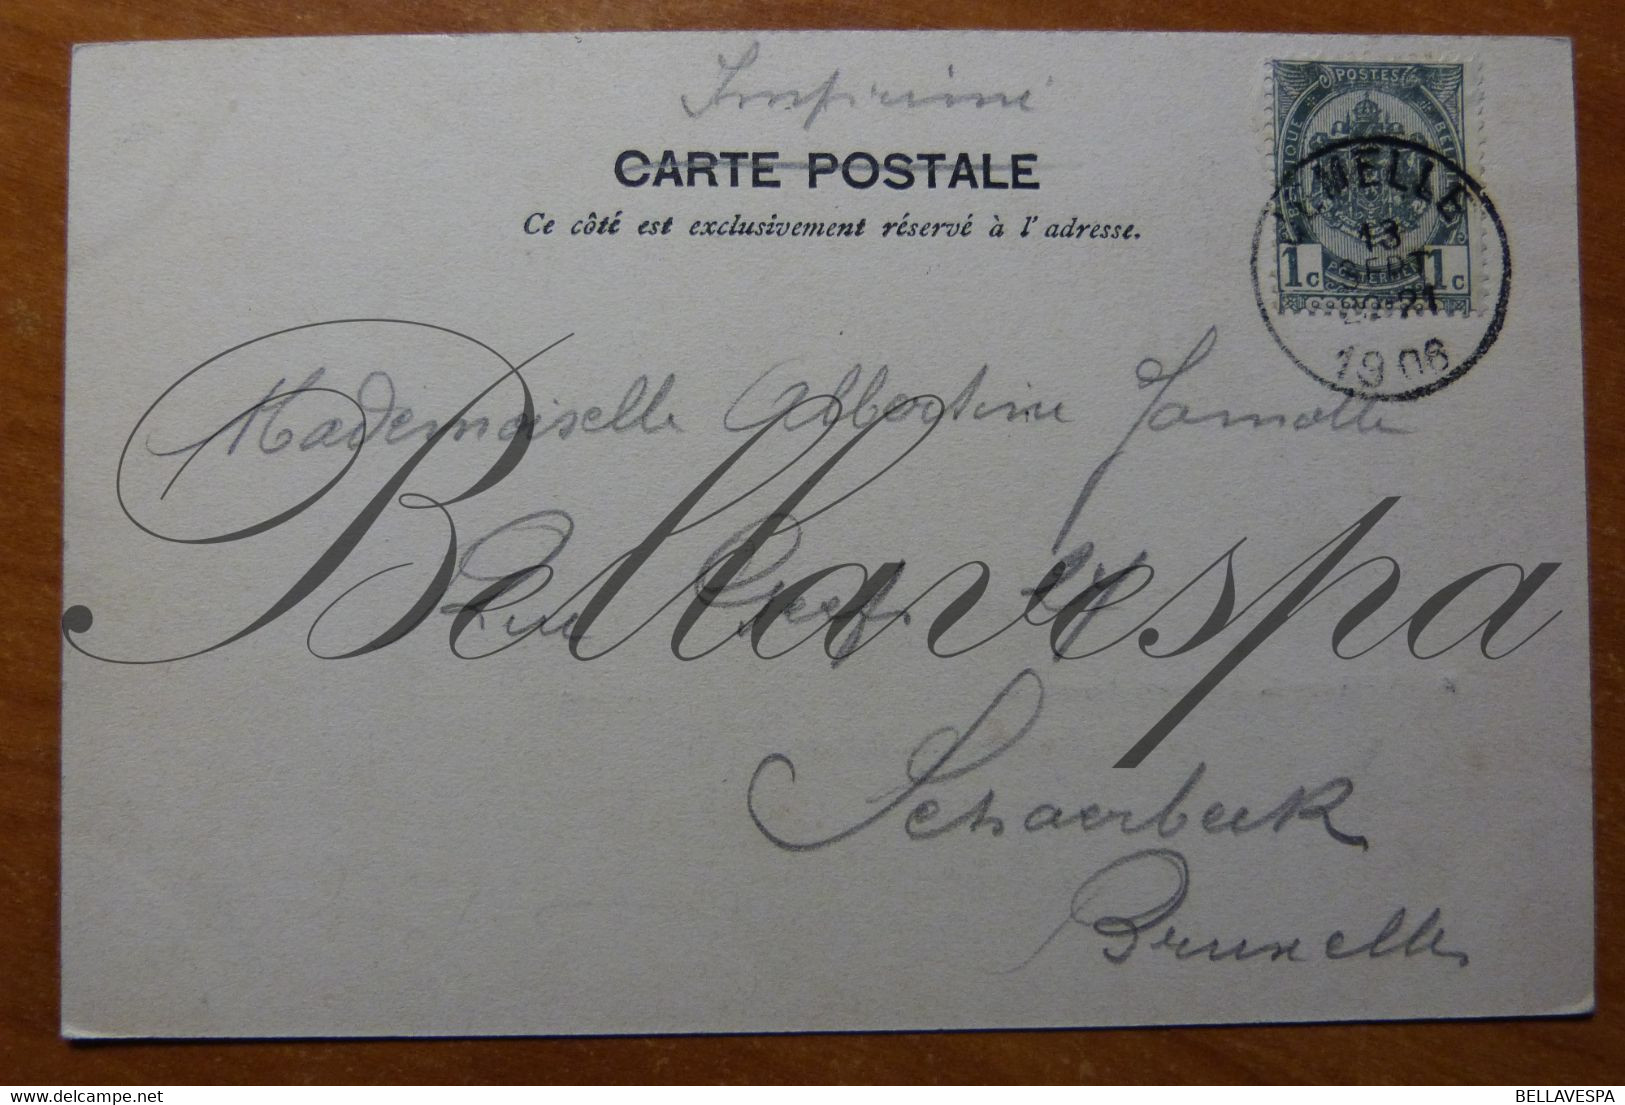 Imprimé
CARTE POSTALE
Ce côté est exclusivement réservé à l'adresse.
POSTES
BELGIQUE
1c 1c
MELLE
13
SEPT
21
1906
Mademoiselle Albertine Jamotte
Rue
Schaerbeek
Bruxelles
Bellavespa
BELLAVESPA